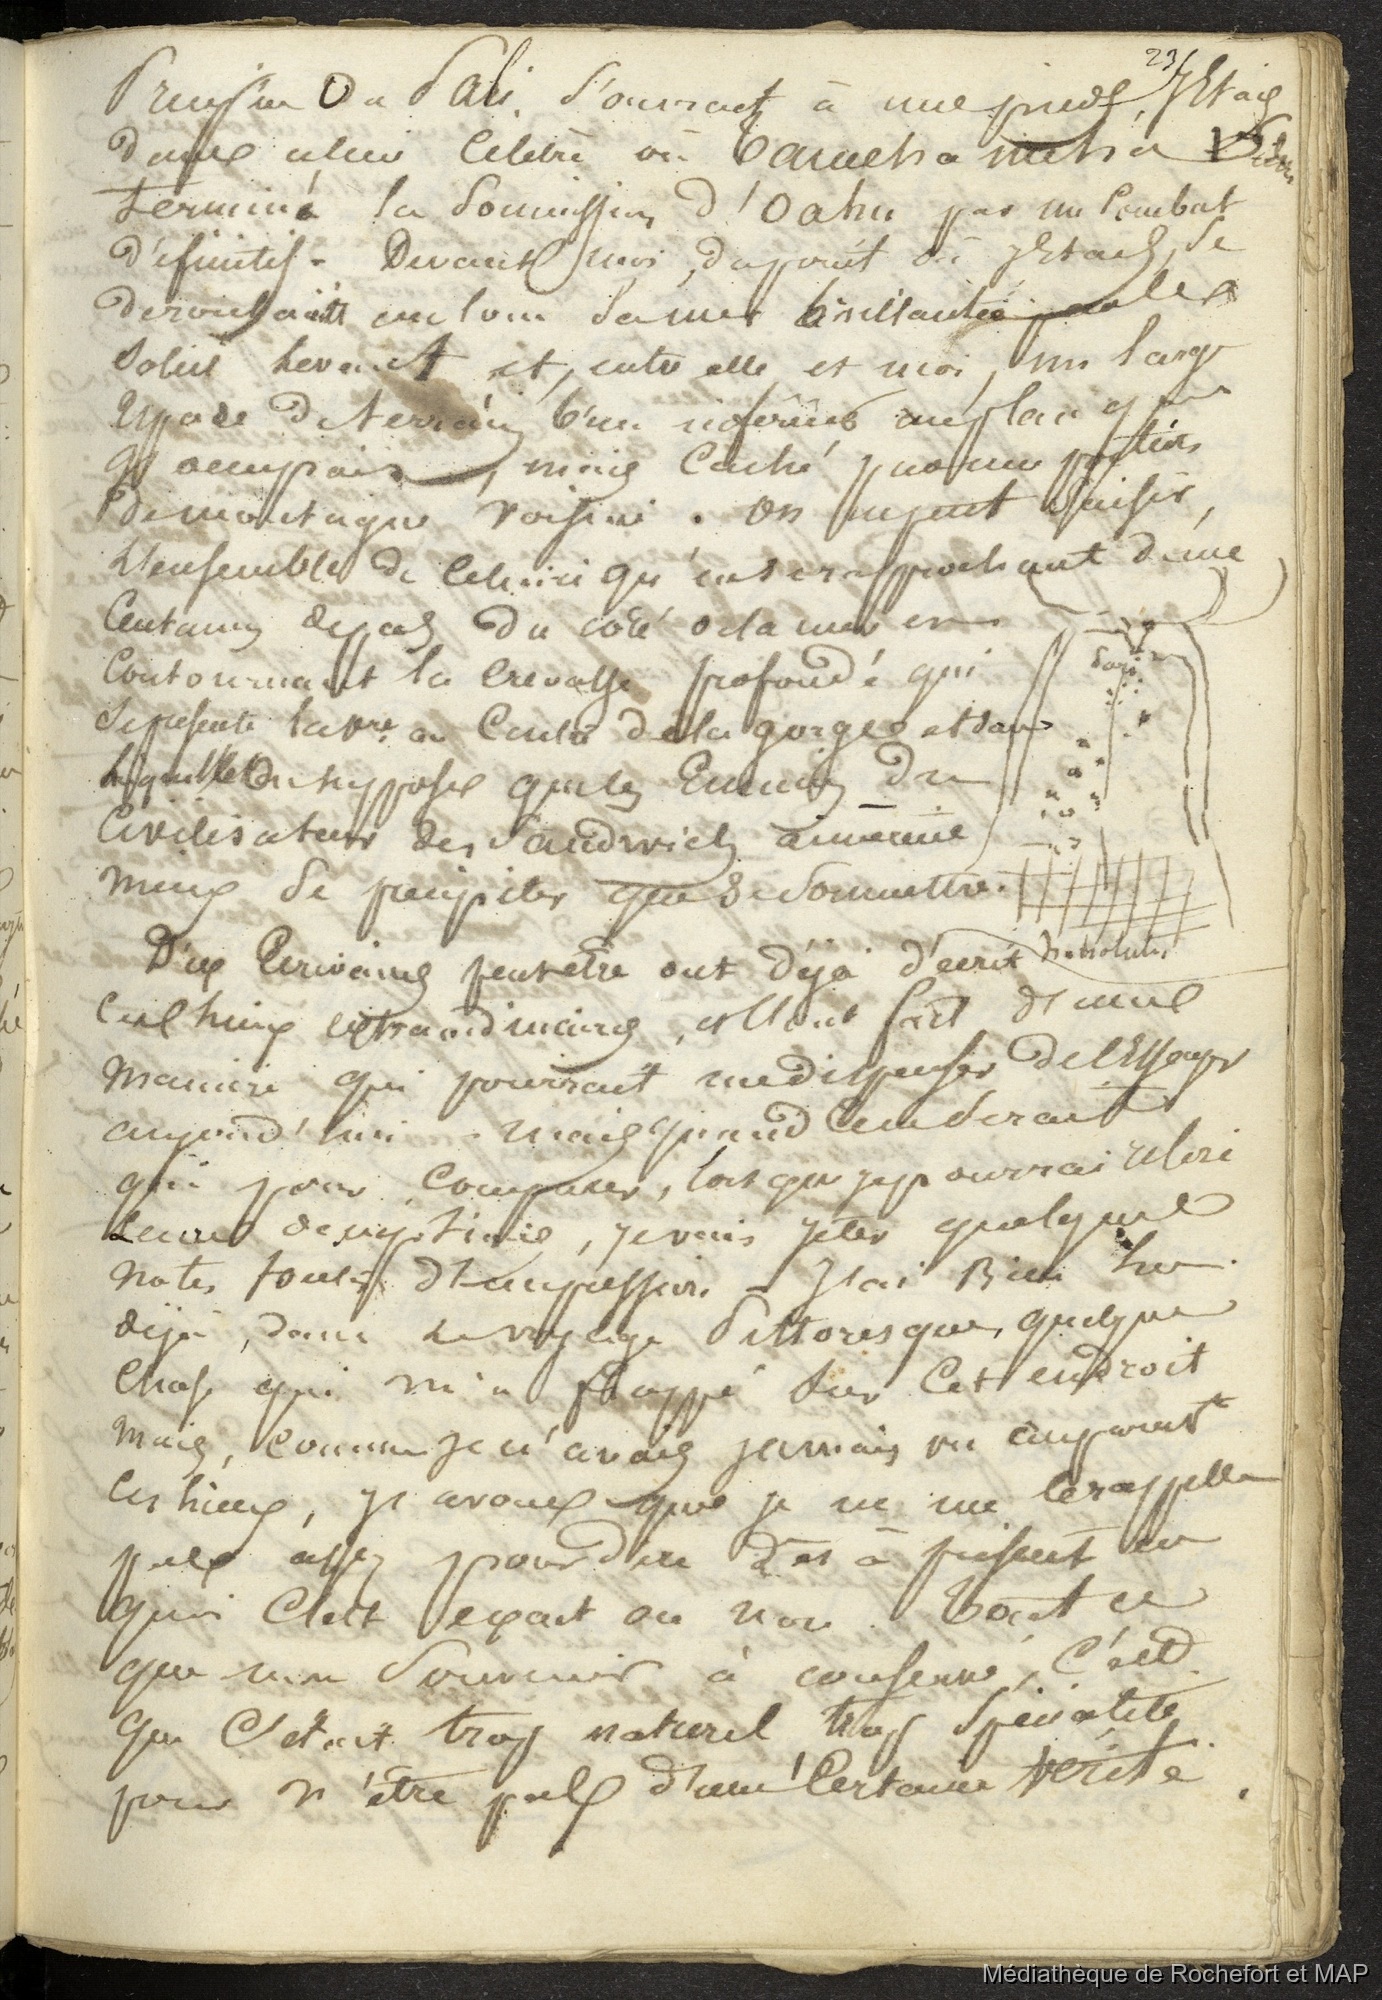 23
Du Pali s'ouvrait à mes pieds, J'Etais
dans celieu Célèbre où Tameha meha
termina la Soumission d'Oahu par un Combat
définitif - Devant moi, du point où J'Etais, se
deroulait au loin la mer brillantée par le
Soleil Levant et, entre elle et moi, un large
Espace de terrain d'un inférieur au plan que
J'occupais, mais Caché par une partie
de montagne voisine. On ne peut saisir,
L'ensemble de celui ci qu'en se rapprochant d'une
Centaine de pas du coté de la mer en
Contournant la Crevasse profonde qui
se présente la 1re au Centre de la gorge et dans
laquelle on suppose que les Ennemis du
Civilisateur des Sandwich aimèrent
mieux se précipiter que de se Soumettre.
Pari
Honolulu
D'es Ecrivains peutêtre ont déjà d'écrit
Ces lieux extraordinaires, et l'ont fait d'une
manière qui pourrait me dispenser de l'Essayer
aujourd'hui - mais quand Ce ne Serait
que pour Comparer, lorsque je pourrai relire
Leurs descriptions, je vais jeter quelques
notes d'impression - J'ai Bien lu
déjà, dans le voyage Pittoresque, quelque
Chose qui m'a frappé sur Cet endroit
mais, comme je n'avais jamais vu auparavt
Ces lieux, je avoue que je ne me le rappelle
pas assez pour dire dès à présent en
quoi C'est exact ou non. Tout ce
que mon Souvenir à conservé, C'est
que C'était trop naturel trop
pour n'être pas d'une Certaine vérité.
Médiathèque de Rochefort et MAP